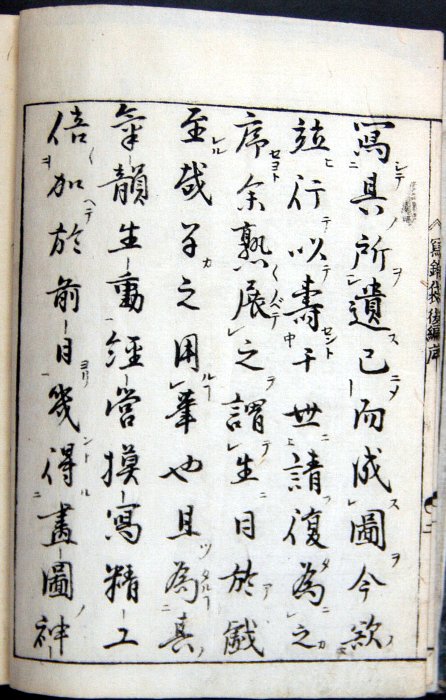 寫其所遺已而成圖今欲
竝行以壽于世請復為之
序余熟展之謂生曰於戲
至哉子之用筆也且為真
氣韻生動經營摸寫精工
倍加於前日幾得畫圖神
寫錦袋後編序 二